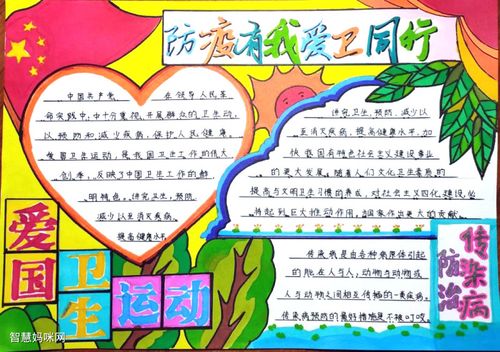 防疫有我爱卫同行
中国共产党 在领导人民革
命实践中,十分重视开展群众的卫生动,
以预防和减少疾病,保护人民健康。
爱国卫生运动,是我国卫生工作的伟大
创举,反映了中国卫生工作的鲜
明特色。讲究卫生,预防
减少以至消灭疾病,
提高健康水平。
讲究卫生,预防、减少以
至消灭疾病,提高健康水平,加
快我国有特色社会主义建设事业
的更大发展。随着人们文化卫生素质的
提高与文明卫生习惯的养成,对社会主义四化建设,必
将起到巨大推动作用,为国家作出更大的贡献。
爱国
卫生
运动
传染病
防治
传染病是由各种病原体引起
的能在人与人,动物与动物或
人与动物之间相互传播的一类疾病。
传染病预防的最好措施是不被叮咬。
智慧妈咪网